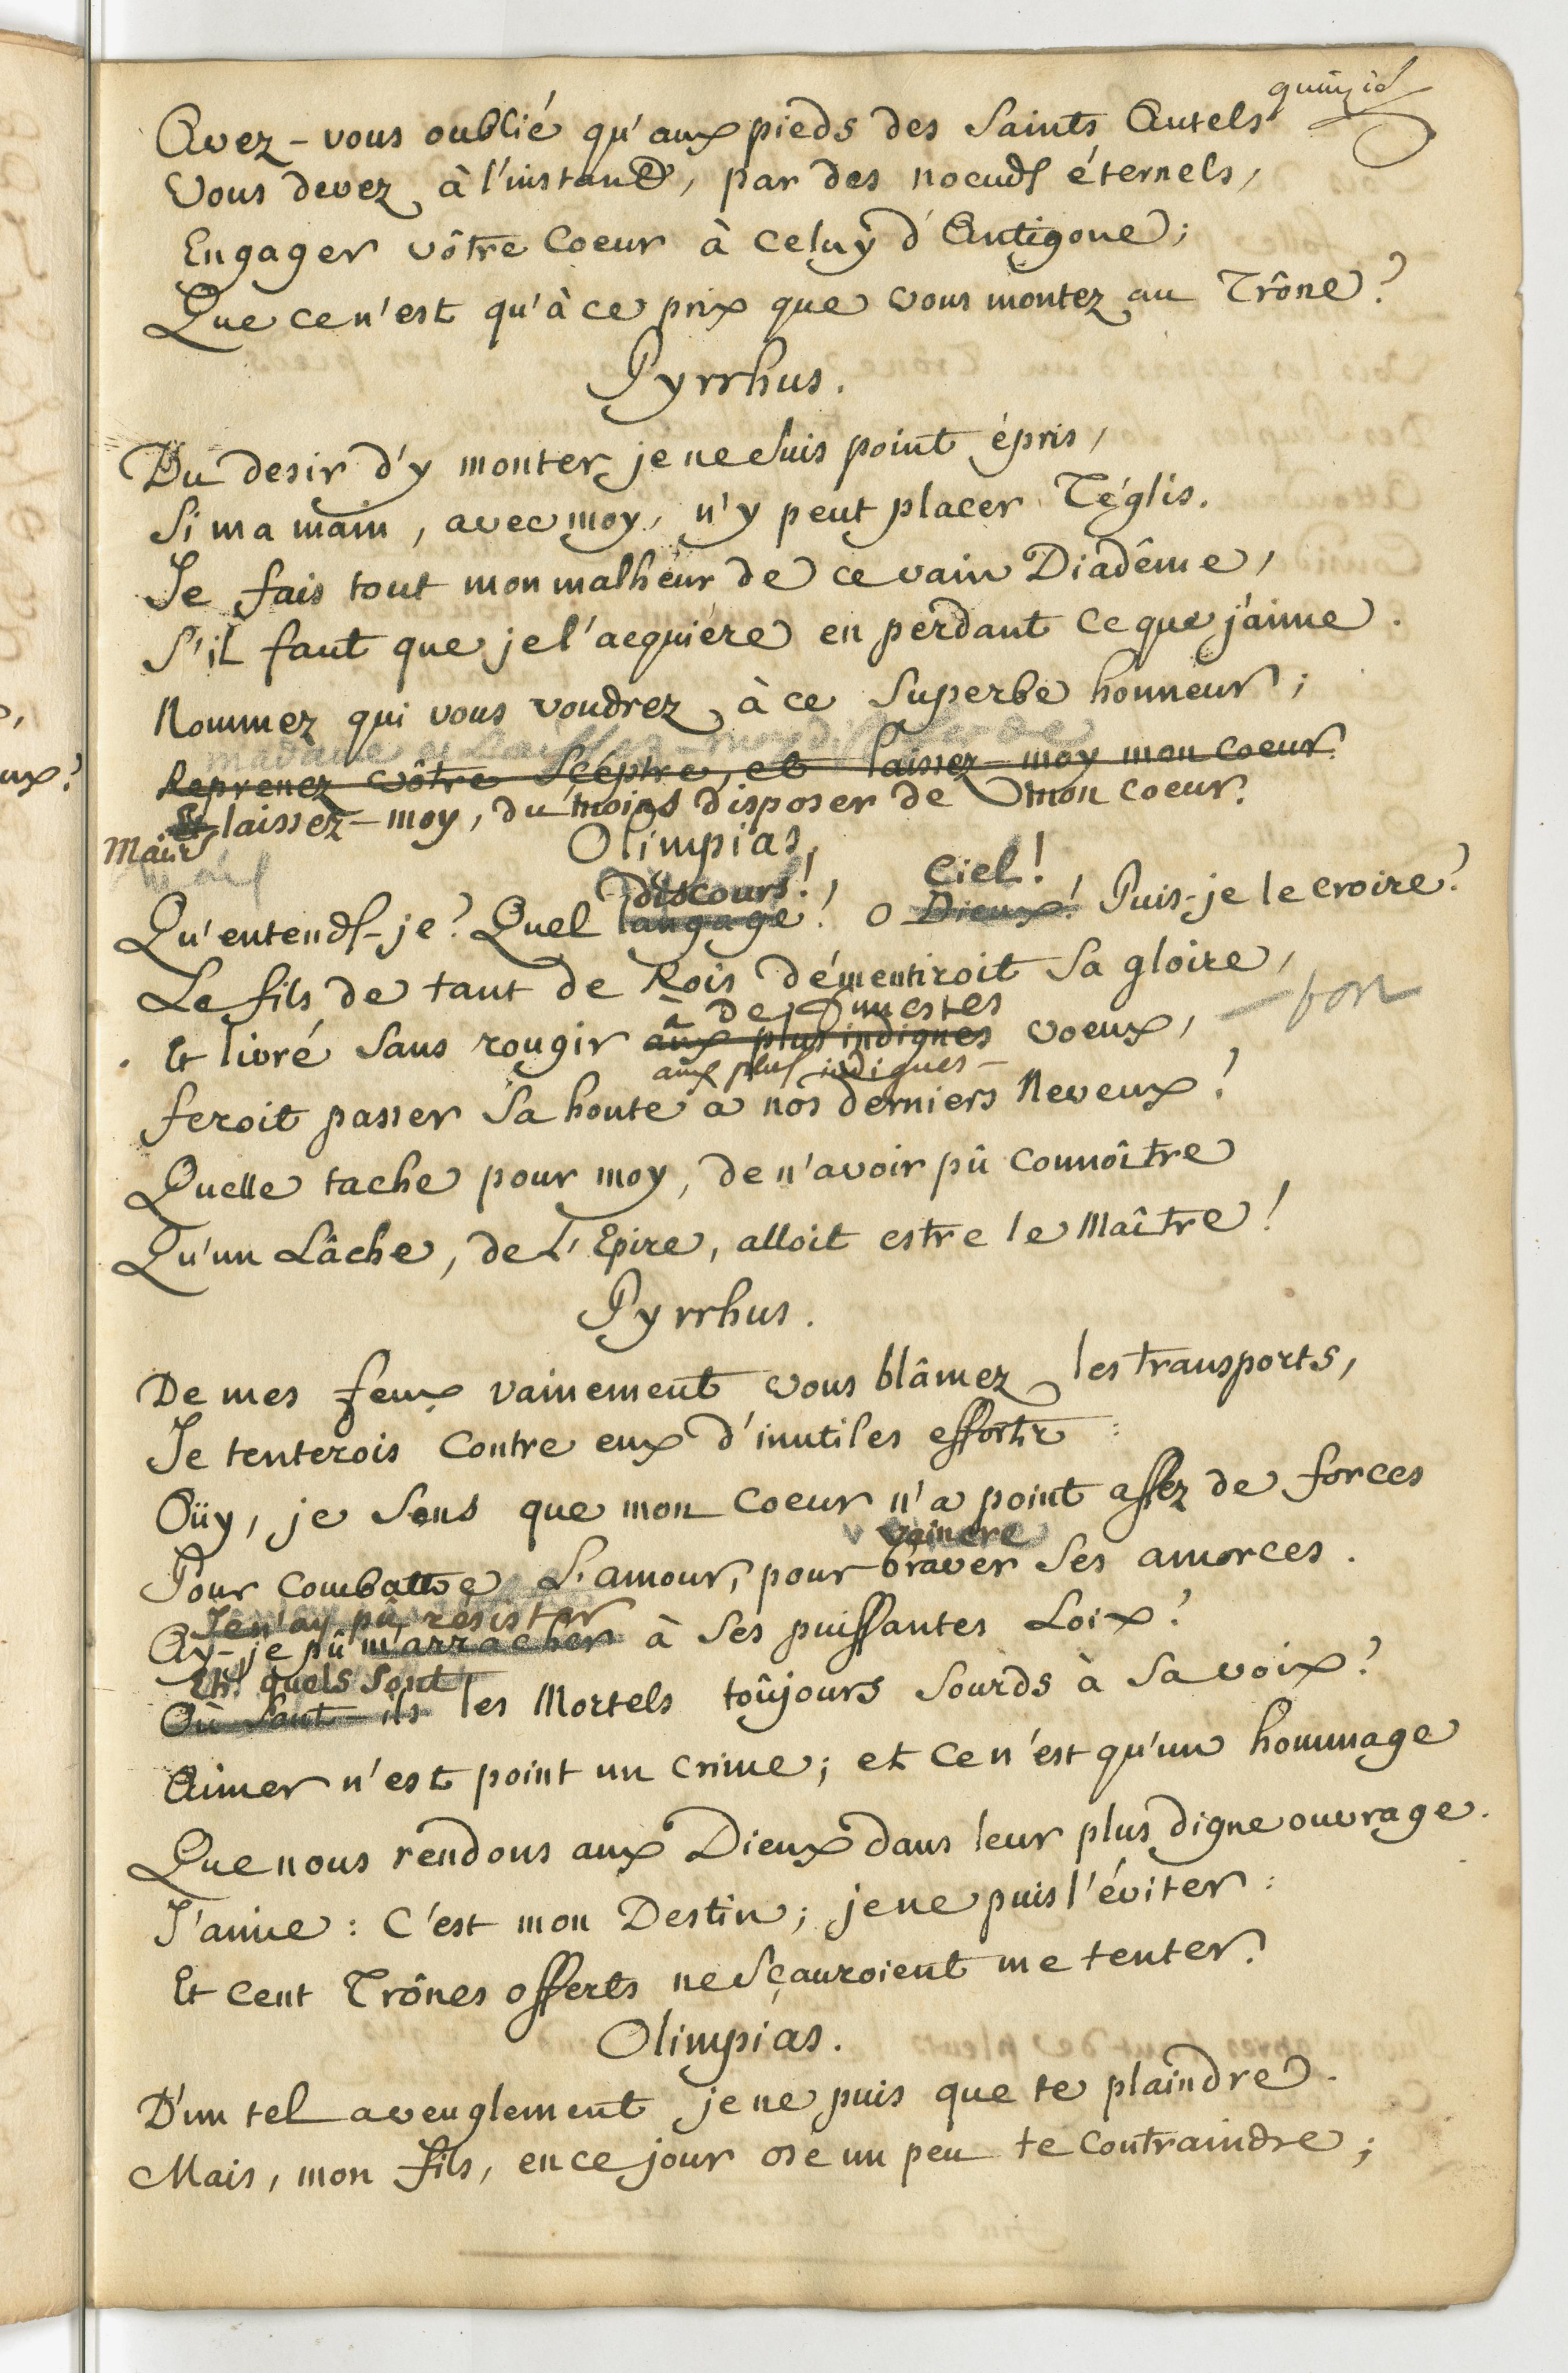 quinzie
Avez-vous oublié qu'aux pieds des Saints Autels
Vous devez à l'instant, par des noeuds éternels,
Engager vôtre Coeur à celuy d'Antigone;
Que ce n'est qu'à ce prix que vous montez au Trône?
Pyrrhus.
Du desir d'y monter je ne suis point épris,
Si ma main, avec moy, n'y peut placer Téglis.
Je fais tout mon malheur de ce vain Diadême,
S'il faut que je l'acquiére en perdant ce que j'aime.
Nommez qui vous voudrez à ce Superbe honneur;
madame et laissez-moy disposer de
Reprenez vôtre Scéptre, et laissez-moy mon coeur.
Et laissez-moy, du moins disposer de mon coeur.
Mais
Olimpias.
Discours! Ciel!
Qu'entends-je? Quel langage! O Dieux! Puis-je le croire?
Le fils de tant de Rois démentiroit Sa gloire,
à de funestes
Et livré Sans rougir aux plus indignes voeux, bon
aux plus indignes
feroit passer Sa honte à nos derniers Neveux!
Quelle tache pour moy, de n'avoir pû connoître
Qu'un Lâche, de L'Epire, alloit estre le Maître!
Pyrrhus.
De mes feux vainement vous blâmez les transports,
Je tenterois Contre eux d'inutiles efforts:
Oüy, je Sens que mon Coeur n'a point assez de forces
vaincre
Pour Combattre L'amour, pour braver Ses amorces.
Je n'ay pû résister
Ay-je pû m'arracher à Ses puissantes Loix?
Eh! quels Sont
Où Sont-ils les Mortels toûjours Sourds à Sa voix?
Aimer n'est point un crime; et Ce n'est qu'un hommage
Que nous rendons aux Dieux dans leur plus digne ouvrage.
J'aime: C'est mon Destin; je ne puis l'éviter:
Et Cent Trônes offerts ne Sçauroient me tenter.
Olimpias.
D'un tel aveuglement je ne puis que te plaindre.
Mais, mon fils, en ce jour ose un peu te Contraindre;